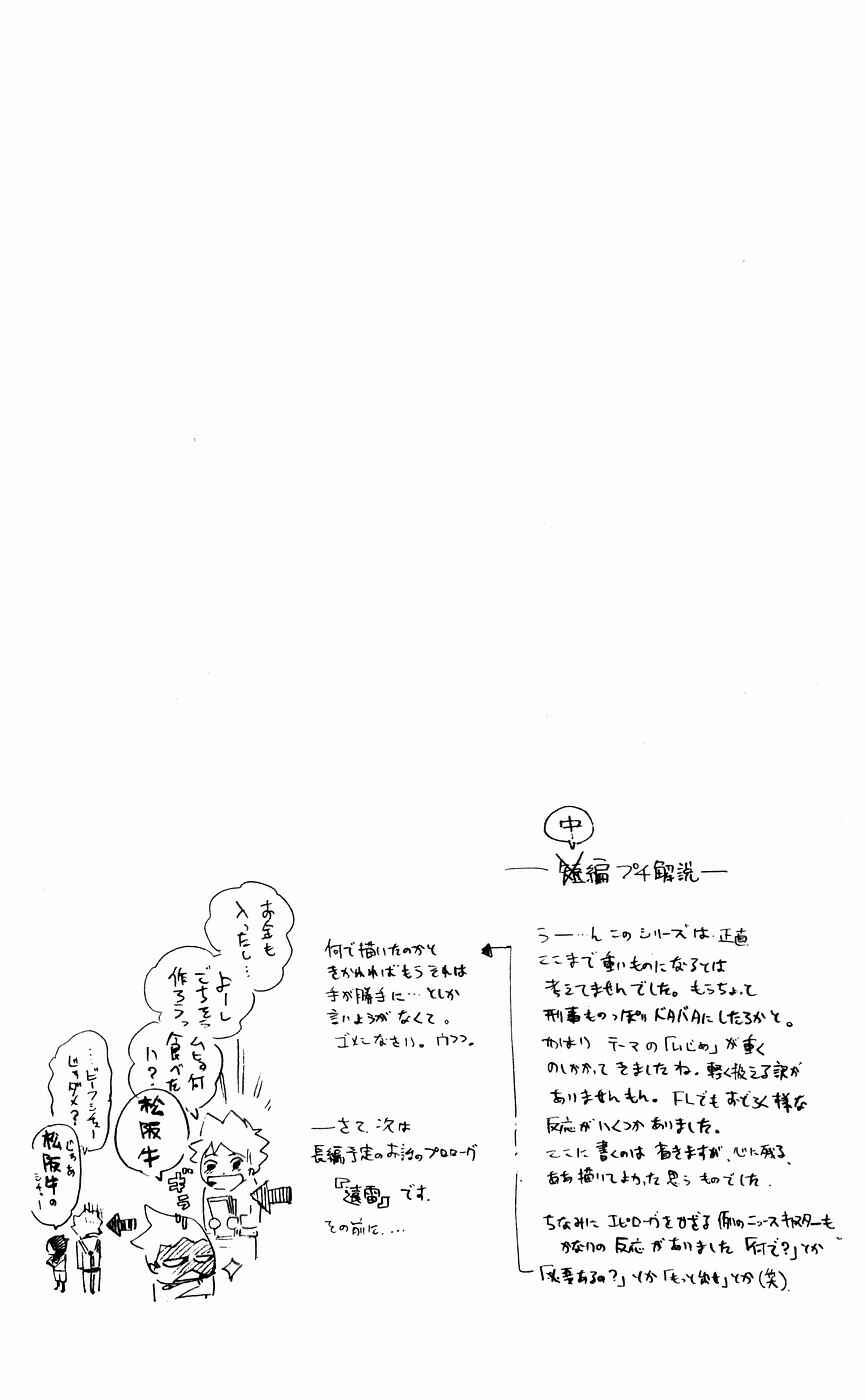 中
短編 プチ解説
うー…ん このシリーズは 正直
ここまで重いものになるとは
考えてませんでした。もうちょって
刑事ものっぽりドタバタにしたろかと。
やはり テーマの「いじめ」が重く
のしかかって きましたね。軽く扱える訳が
ありませんもん。F.Lでもおどろく様な
反応がいくつかありました。
ここに書くのは 省きますが、心に残る、
ああ描いてよかった 思うものでした.
ちなみに エピローグをかざる 例のニュースキャスターも
かなりの反応がありました「何で?」とか
「必要あるの?」とか「もっと出せ」とか(笑).
何で描いたのかと
きかれればもう それは
手が勝手に…としか
言いようがなくて。
ゴメンなさい。ウフフ。
―さて、次は
長編予定のお話のプロローグ
『遠雷』です.
その前に....
お金も
入ったし…
よーし
ごちそう
作ろうっ
ムヒョ何
食べた
い?
松阪牛
ギラ
…ビーフシチュー
じゃダメ?
じゃあ
松阪牛の
シチュー